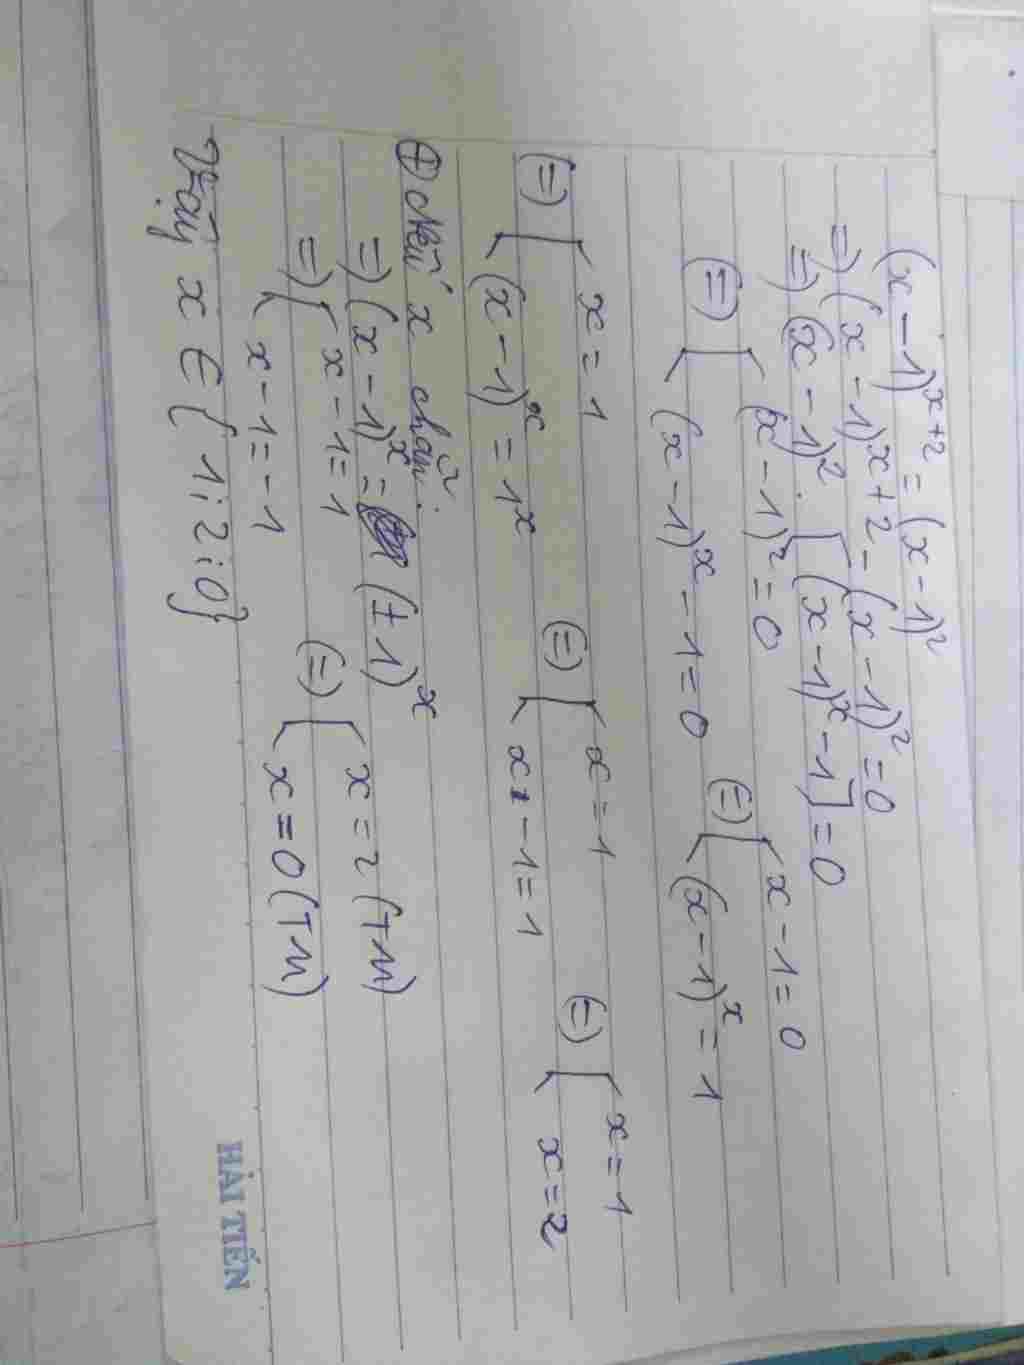 (x-1)^{x+2} = (x-1)^2
=> (x-1)^{x+2} - (x-1)^2 = 0
=> (x-1)^2 . [(x-1)^x - 1] = 0
(=) [ (x-1)^2 = 0 (=) [ x-1 = 0
(x-1)^x - 1 = 0 (x-1)^x = 1
(=) [ x = 1 (=) [ x = 1 (=) [ x = 1
(x-1)^x = 1^x x-1 = 1 x = 2
⊕ Nếu x chẵn:
=> (x-1)^x = (±1)^x
=> [ x-1 = 1 (=) [ x = 2 (TM)
x-1 = -1 x = 0 (TM)
Vậy x ∈ {1; 2; 0}
HẢI TIẾN